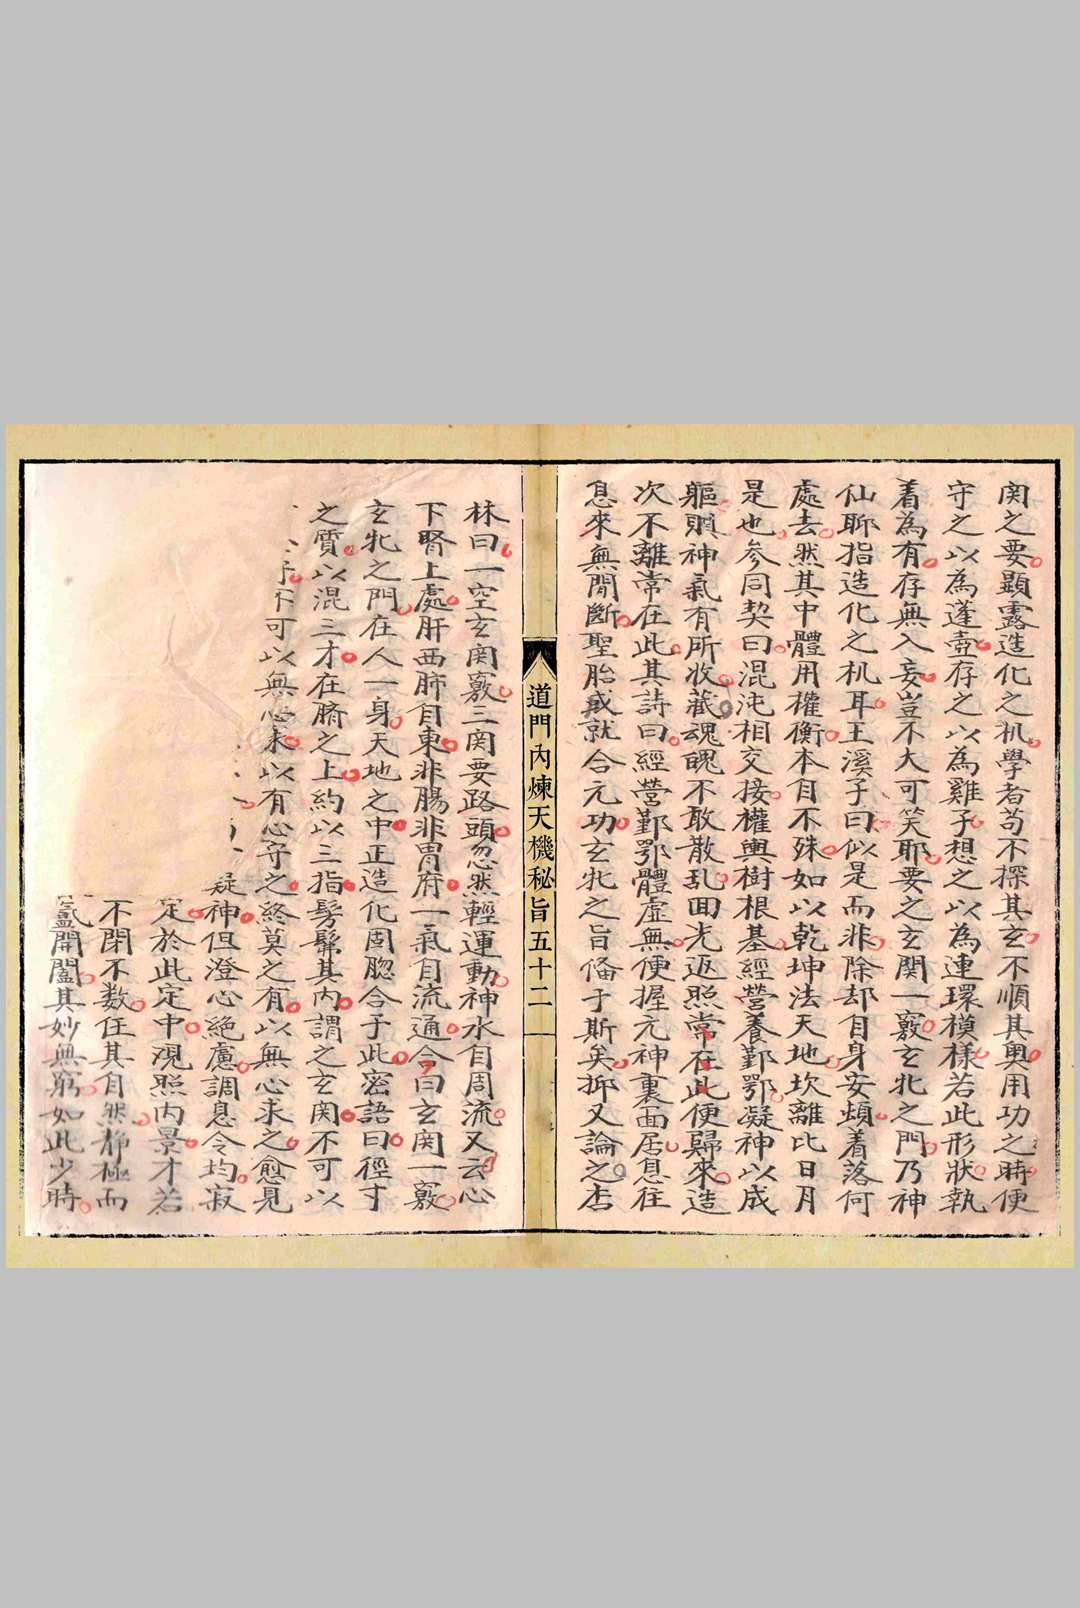 関之要顯露造化之机學者苟不探其玄不順其奧用功之時便
守之以為蓬壺存之以為雞子想之以為連環模樣若此形狀執
着為有存無入妄豈不大可笑耶要之玄関一竅玄牝之門乃神
仙聊指造化之机耳王溪子曰似是而非除却自身安頓着落何
處去然其中體用權衡本自不殊如以乾坤法天地坎離比日月
是也参同契曰混沌相交接權輿樹根基經營養鄞鄂凝神以成
軀則神氣有所收藏魂魄不敢散乱回光返照常在此便歸來造
次不離常在此其詩曰經營鄞鄂體虛無便握元神裏面居息往
息來無間斷聖胎成就合元功玄牝之旨俻于斯矣抑又論之杏
道門內煉天機秘旨五十二
林曰一空玄関竅三関要路頭忽然輕運動神水自周流又云心
下腎上處肝西肺自東非腸非胃府一氣自流通今曰玄関一竅
玄牝之門在人一身天地之中正造化固脗合于此密語曰徑寸
之質以混三才在臍之上約以三指髣髴其內謂之玄関不可以
不可以無心求以有心守之終莫之有以無心求之愈見
凝神但澄心絶慮調息令均寂
定於此定中覌照內景才若
不閉不数任其自然静極而
開闔其妙無窮如此少時